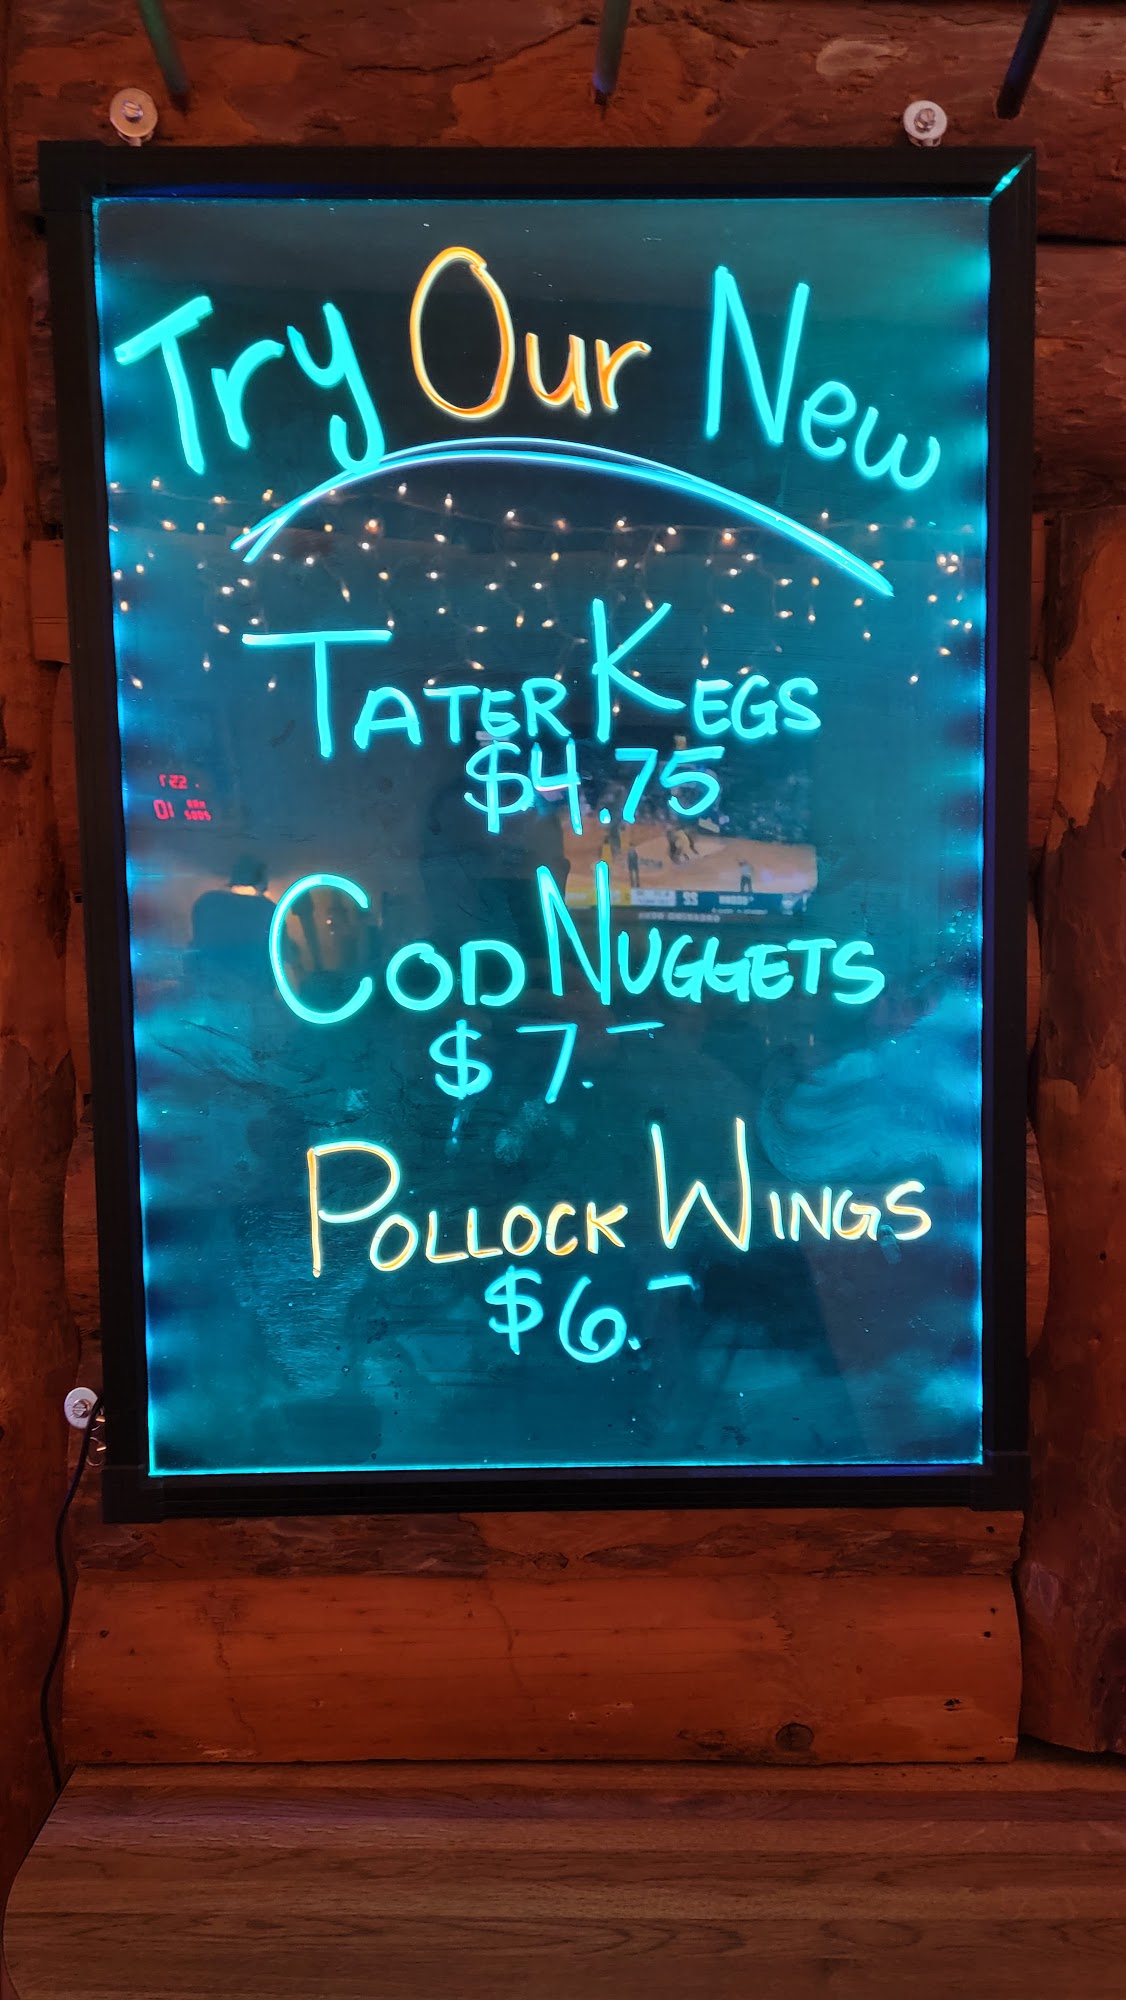 Try Our New
TATER KEGS
$4.75
COD NUGGETS
$7.-
POLLOCK WINGS
$6.-